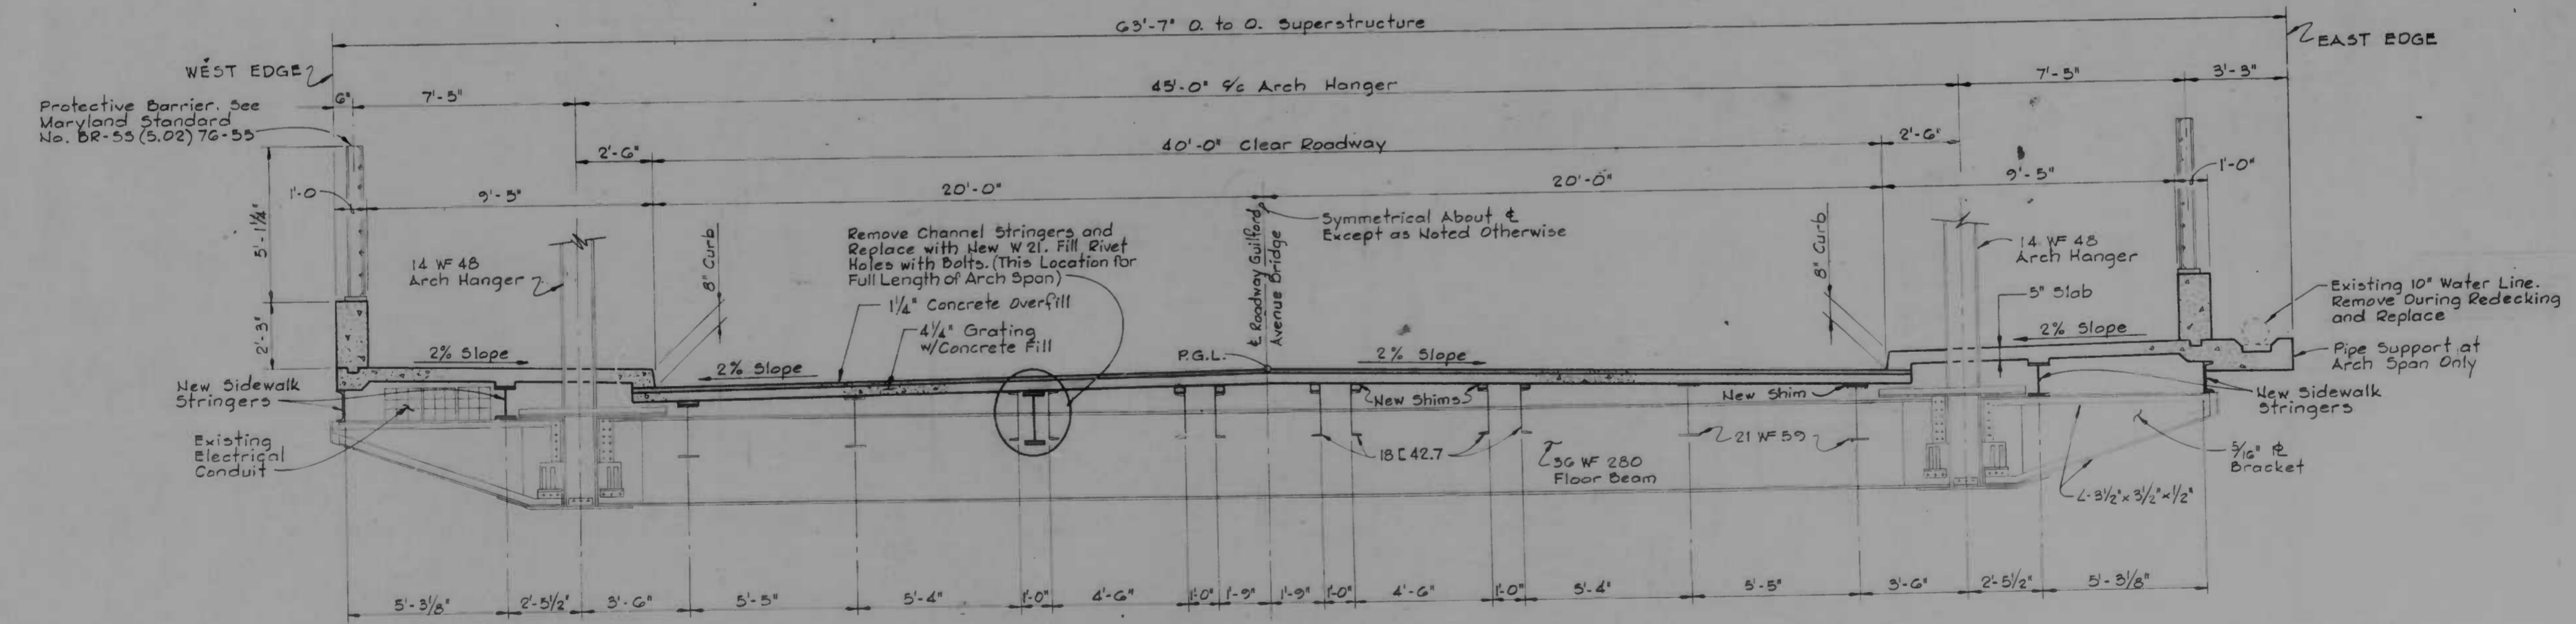 63'-7" O. to O. Superstructure
WEST EDGE
EAST EDGE
6"
7'-5"
45'-0" c/c Arch Hanger
7'-5"
3'-3"
Protective Barrier. See
Maryland Standard
No. BR-SS (5.02) 76-55
2'-6"
40'-0" Clear Roadway
2'-6"
1'-0
9'-5"
20'-0"
20'-0"
9'-5"
1'-0"
5'-1 1/4"
2'-3"
14 WF 48
Arch Hanger
8" Curb
Remove Channel Stringers and
Replace with New W 21. Fill Rivet
Holes with Bolts. (This Location for
Full Length of Arch Span)
1 1/4" Concrete Overfill
4 1/4" Grating
w/Concrete Fill
℄ Roadway Guilford
Avenue Bridge
Symmetrical About ℄
Except as Noted Otherwise
8" Curb
14 WF 48
Arch Hanger
5" Slab
Existing 10" Water Line.
Remove During Redecking
and Replace
2% Slope
2% Slope
P.G.L.
2% Slope
2% Slope
Pipe Support at
Arch Span Only
New Sidewalk
Stringers
New Shims
New Shim
New Sidewalk
Stringers
Existing
Electrical
Conduit
18 [ 42.7
36 WF 280
Floor Beam
21 WF 59
5/16" ℄
Bracket
L-3 1/2" x 3 1/2" x 1/2"
5'-3 1/8"
2'-5 1/2"
3'-6"
5'-5"
5'-4"
1'-0"
4'-6"
1'-0"
1'-9"
1'-9"
1'-0"
4'-6"
1'-0"
5'-4"
5'-5"
3'-6"
2'-5 1/2"
5'-3 1/8"